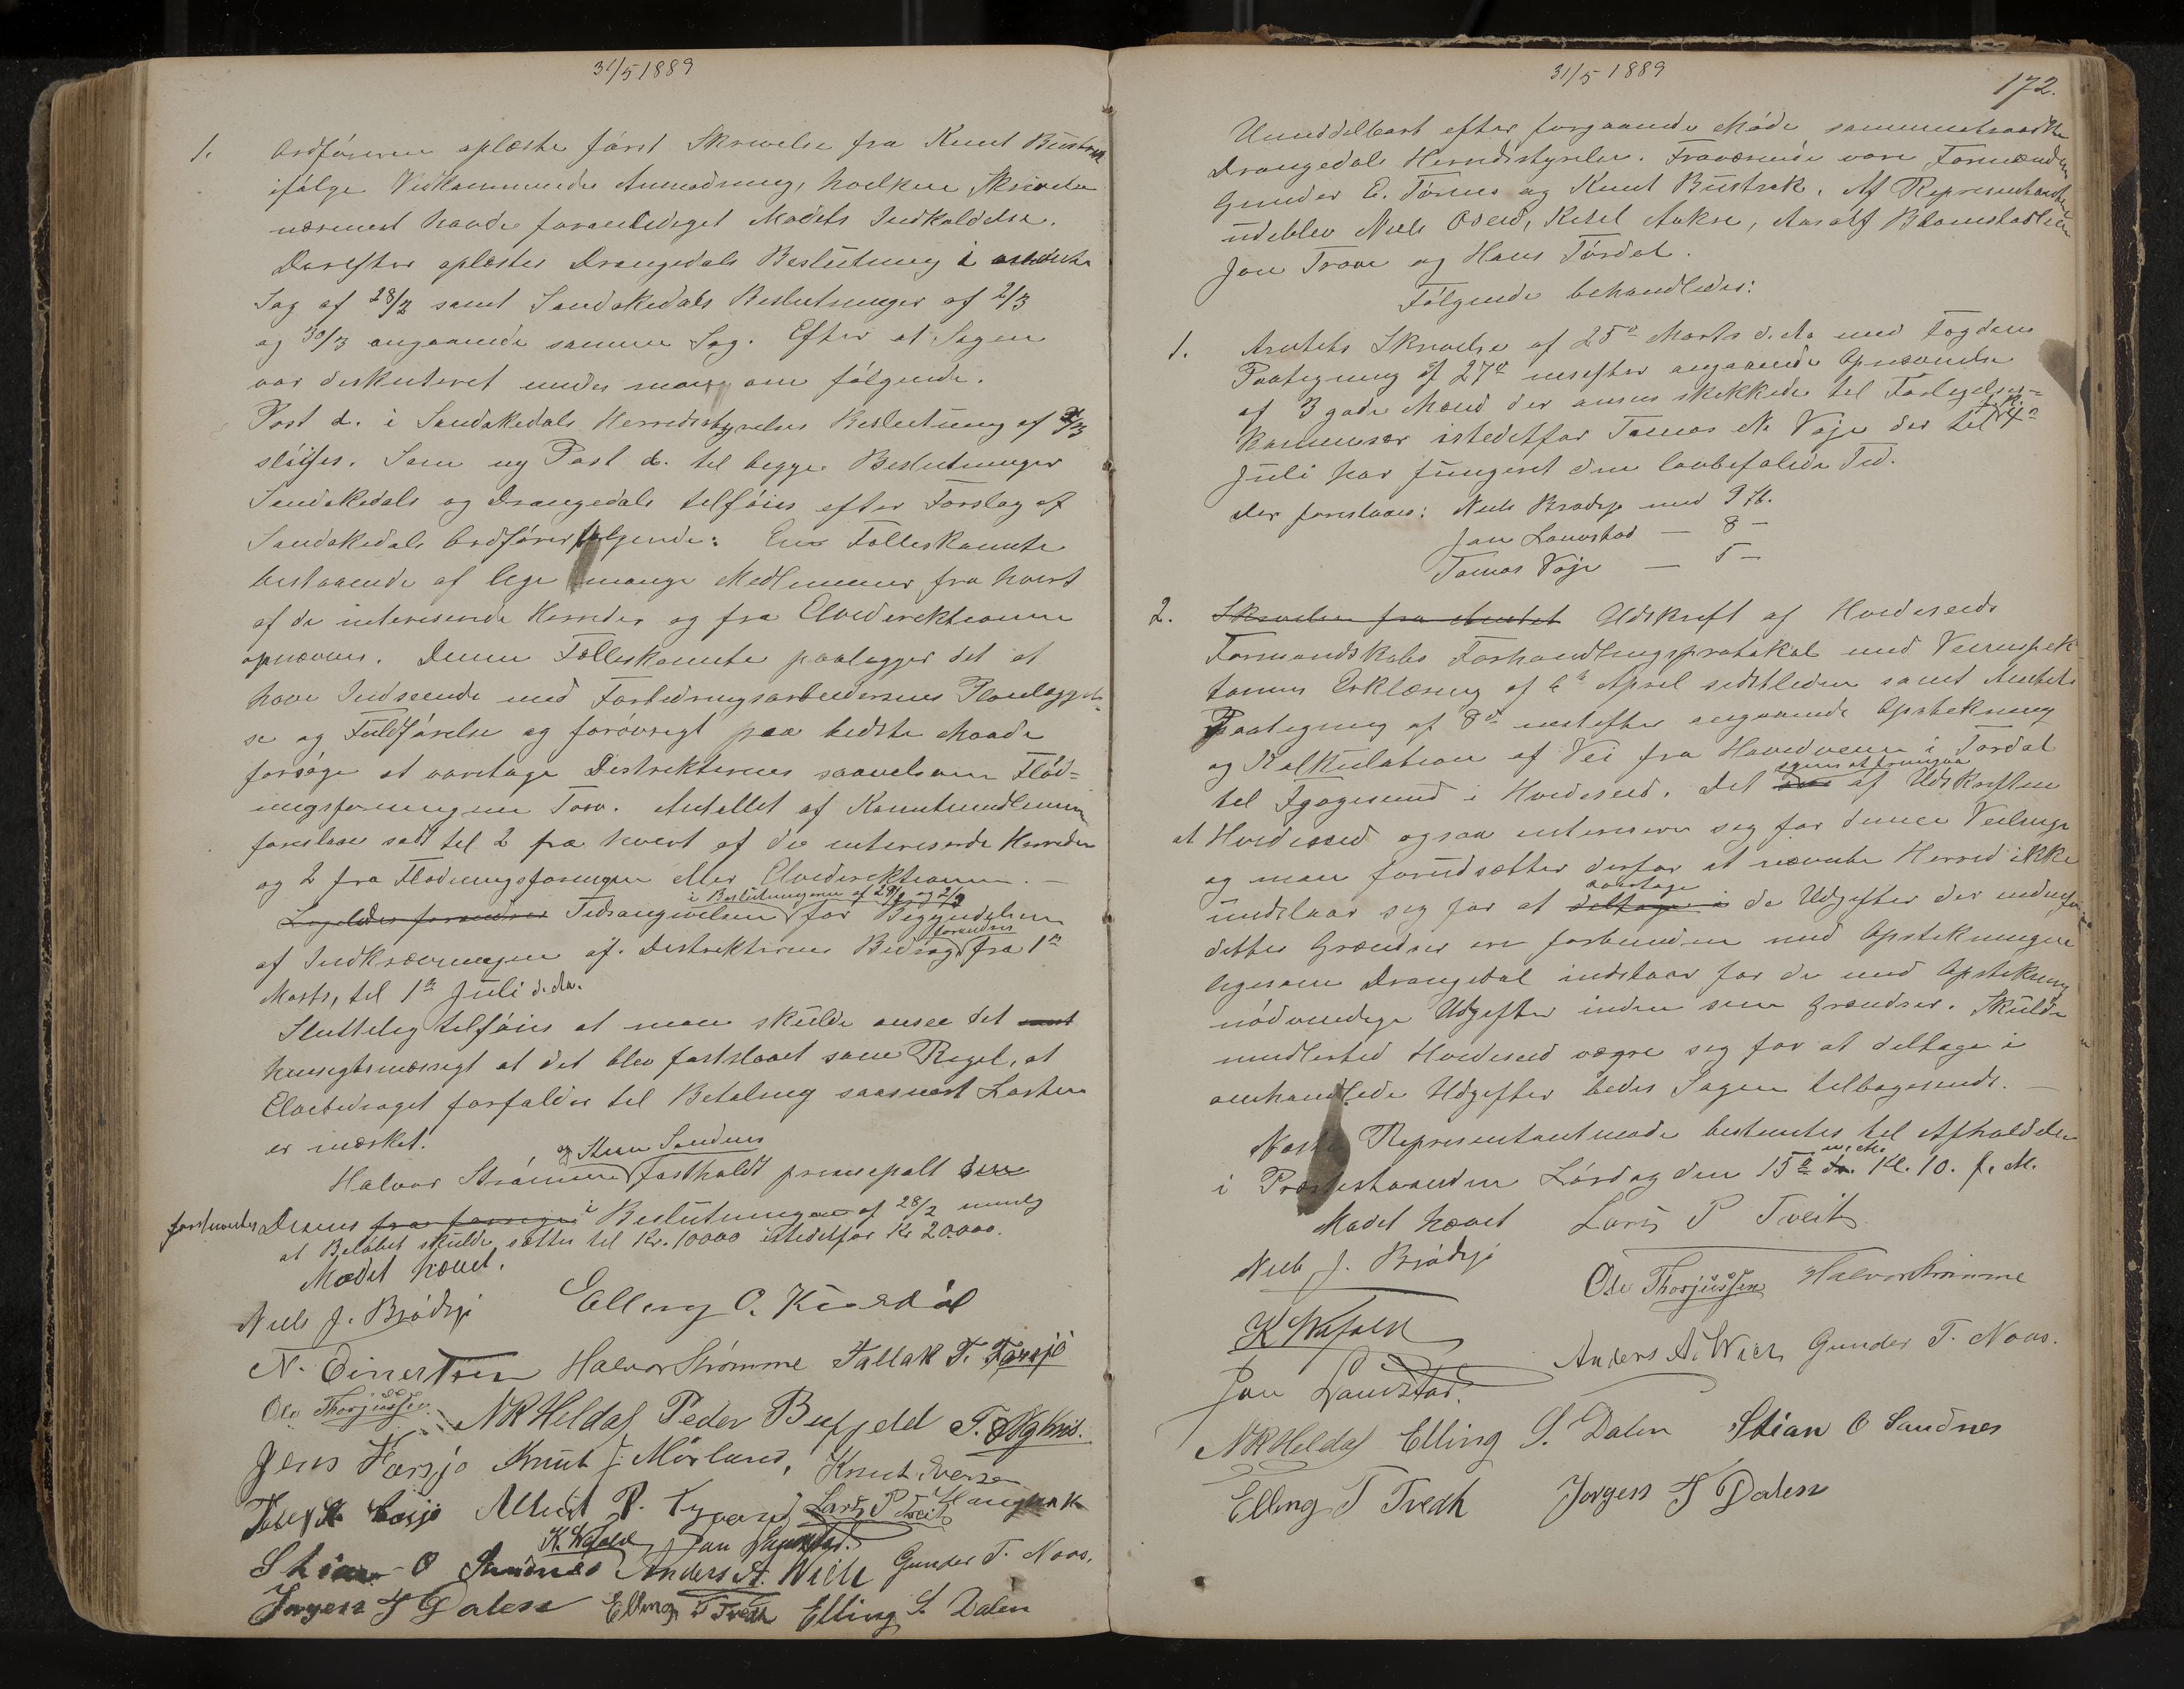 31/5 1889
1. Ordføreren oplæste først Skrivelse fra Knut Bustrak
ifølge Vedkommendes Anmodning, hvilken Skrivelse
nærmest havde foranlediget Mødets Indkaldelse.
Derefter oplæstes Drangedals Beslutning i
Sag af 28/2 samt Sandøkedals Beslutninger af 2/3
og 30/3 angaaende samme Sag. Efter at Sagen
var diskuteret man om følgende.
Post d. i Sandøkedals Herredsstyrelses Beslutning af 2/3
sløifes. Som ny Post d. til begge Beslutninger
Sandøkedals og Drangedals tilføies efter Forslag af
Sandøkedals Ordfører følgende: En Felleskomite
bestaaende af lige mange Medlemmer fra hvert
af de interesserede Herreder og fra Elvedirektionen
opnævnes. Denne Fælleskomite paalægger det at
have Indseende med Forbedringsarbeidernes Planlæggel-
se og Fuldførelse og forøvrigt paa bedste Maade
forsøge at varetage Distrikternes saavelsom Flød-
ningsforeningens Tarv. Antallet af Komitemedlemmer
foreslaaes sat til 2 fra hvert af de interesserede Herreder
og 2 fra Flødningsforeningen eller Elvedirektionen. —
i Beslutningerne af 28/2 og 2/3
Tidsangivelsen for Begyndelsen
forandres
af Indkrævningen af Distrikternes Bidrag fra 1ste
Marts, til 1ste Juli d. A.
Sluttelig tilføies at man skulde ansee det
hensigtsmæssigt at det blev fastslaaet som Regel, at
Elvebidraget forfalder til Betaling saasnart Lasten
er mærket.
og Stian Sandnes
Halvor Strømme fastholdt prinsipalt den
forhenværendes i Beslutningen af 28/2 nemlig
at Beløbet skulde sættes til Kr. 10000 istedetfor Kr 20.000.
Mødet hævet.
Niels J. Brødsjø Elling O. Kiosdal
N. Einertsen Halvor Strømme Tallak T. Farsjø
Ole Thorjussen NRHeldal Peder Bufjeld
Jens Farsjø Knut J. Mørland, Knut Iversen
Lars P Tveit
K. Wafald Jan Landstad.
Stian O Sandnes Anders A. Wieh Gunder T. Naas.
Jørgen J Dalen Elling T Tvedt Elling S. Dalen
31/5 1889
172.
Umiddelbart efter forgaaende Møde sammentraadte
Drangedals Herredsstyrelse. Fraværende vare Formændene
Gunder E. Tørnes og Knut Bustrak. Af Repræsentanterne
udeblev Niels Kitil Aakre,
Jon Traae og Hans Tørdal.
Følgende behandledes:
1. Amtets Skrivelse af 25de Marts d. A. med Fogdens
Paategning af 27de næstefter angaaende Opnævnelse
af 3 gode Mænd der ansees skikkede til Forligelses-
kommissær istedetfor Tomas N. Voje der til 4de
Juli har fungeret den lovbefalede Tid.
Der foreslaaes: Niels Brødsjø med 9 St.
Jan Landstad — 8 —
Tomas Voje — 5 —
2. Skrivelse fra Amtet Udskrift af Hvideseids
Formandskabs Forhandlingsprotokol med Veiinspek
tørens Erklæring af 6te April sidstleden samt Amtets
Paategning af 8de næstefter angaaende Opstikning
og Kalkulation af Vei fra Hovedveien i Tørdal
synes at fremgaa
til Fjagesund i Hvideseid. Det af Udskriften
at Hvideseid ogsaa interesserer seg for denne Veilinje
og man forudsætter derfor at nævnte Herred ikke
overtage
undslaar seg for at deltage i de Udgifter der indenfor
dettes Grændser ere forbundne med Opstikningen
ligesom Drangedal indstaar for de med Opstikning
nødvendige Udgifter inden sine Grændser. Skulde
imidlertid Hvideseid vægre seg for at deltage i
omhandlede Udgifter bedes Sagen tilbagesendt. —
Næste Repræsentantmøde bestemtes til Afholdelse
n. M.
i Præstestranden Lørdag den 15de Kl. 10. f. M.
Mødet hævet Lars P Tveit
Niels J. Brødsjø
Ole Thorjussen Halvor Strømme
K Wafald
Anders A. Wieh Gunder T. Naas.
Jan Landstad.
NRHeldal Elling S. Dalen Stian O Sandnes
Elling T Tvedt Jørgen J Dalen